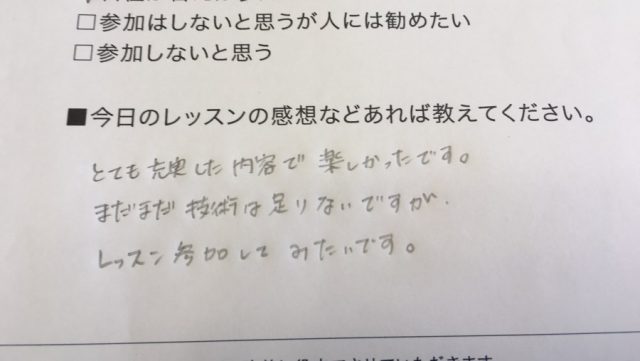 □参加はしないと思うが人には勧めたい
□参加しないと思う
■今日のレッスンの感想などあれば教えてください。
とても充実した内容で楽しかったです。
まだまだ技術は足りないですが、
レッスン参加してみたいです。
させていただきます